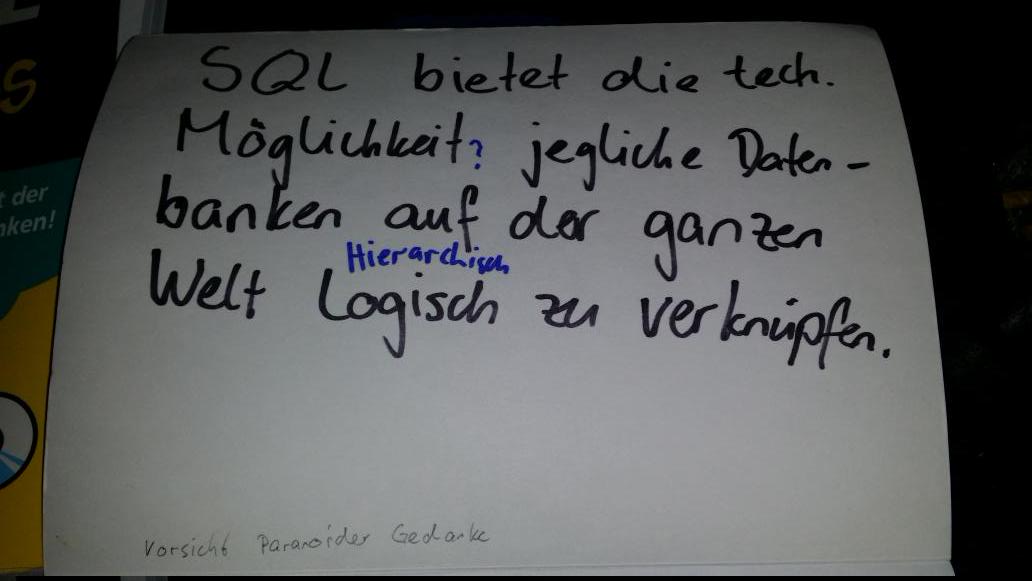 S
t der
nken!
SQL bietet die tech.
Möglichkeit? jegliche Daten-
banken auf der ganzen
Hierarchisch
Welt Logisch zu verknüpfen.
Vorsicht Paranoider Gedanke